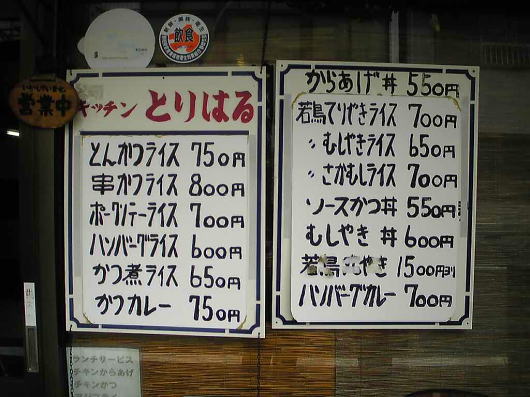 飲食
営業中
キッチン とりはる
とんかつライス 750円
串かつライス 800円
ポークソテーライス 700円
ハンバーグライス 600円
かつ煮ライス 650円
かつカレー 750円
からあげ丼 550円
若鳥てりやきライス 700円
〃 むしやきライス 650円
〃 さかむしライス 700円
ソースかつ丼 550円
むしやき丼 600円
若鳥 やき 1500円
ハンバーグカレー 700円
ランチサービス
チキンからあげ
チキンかつ